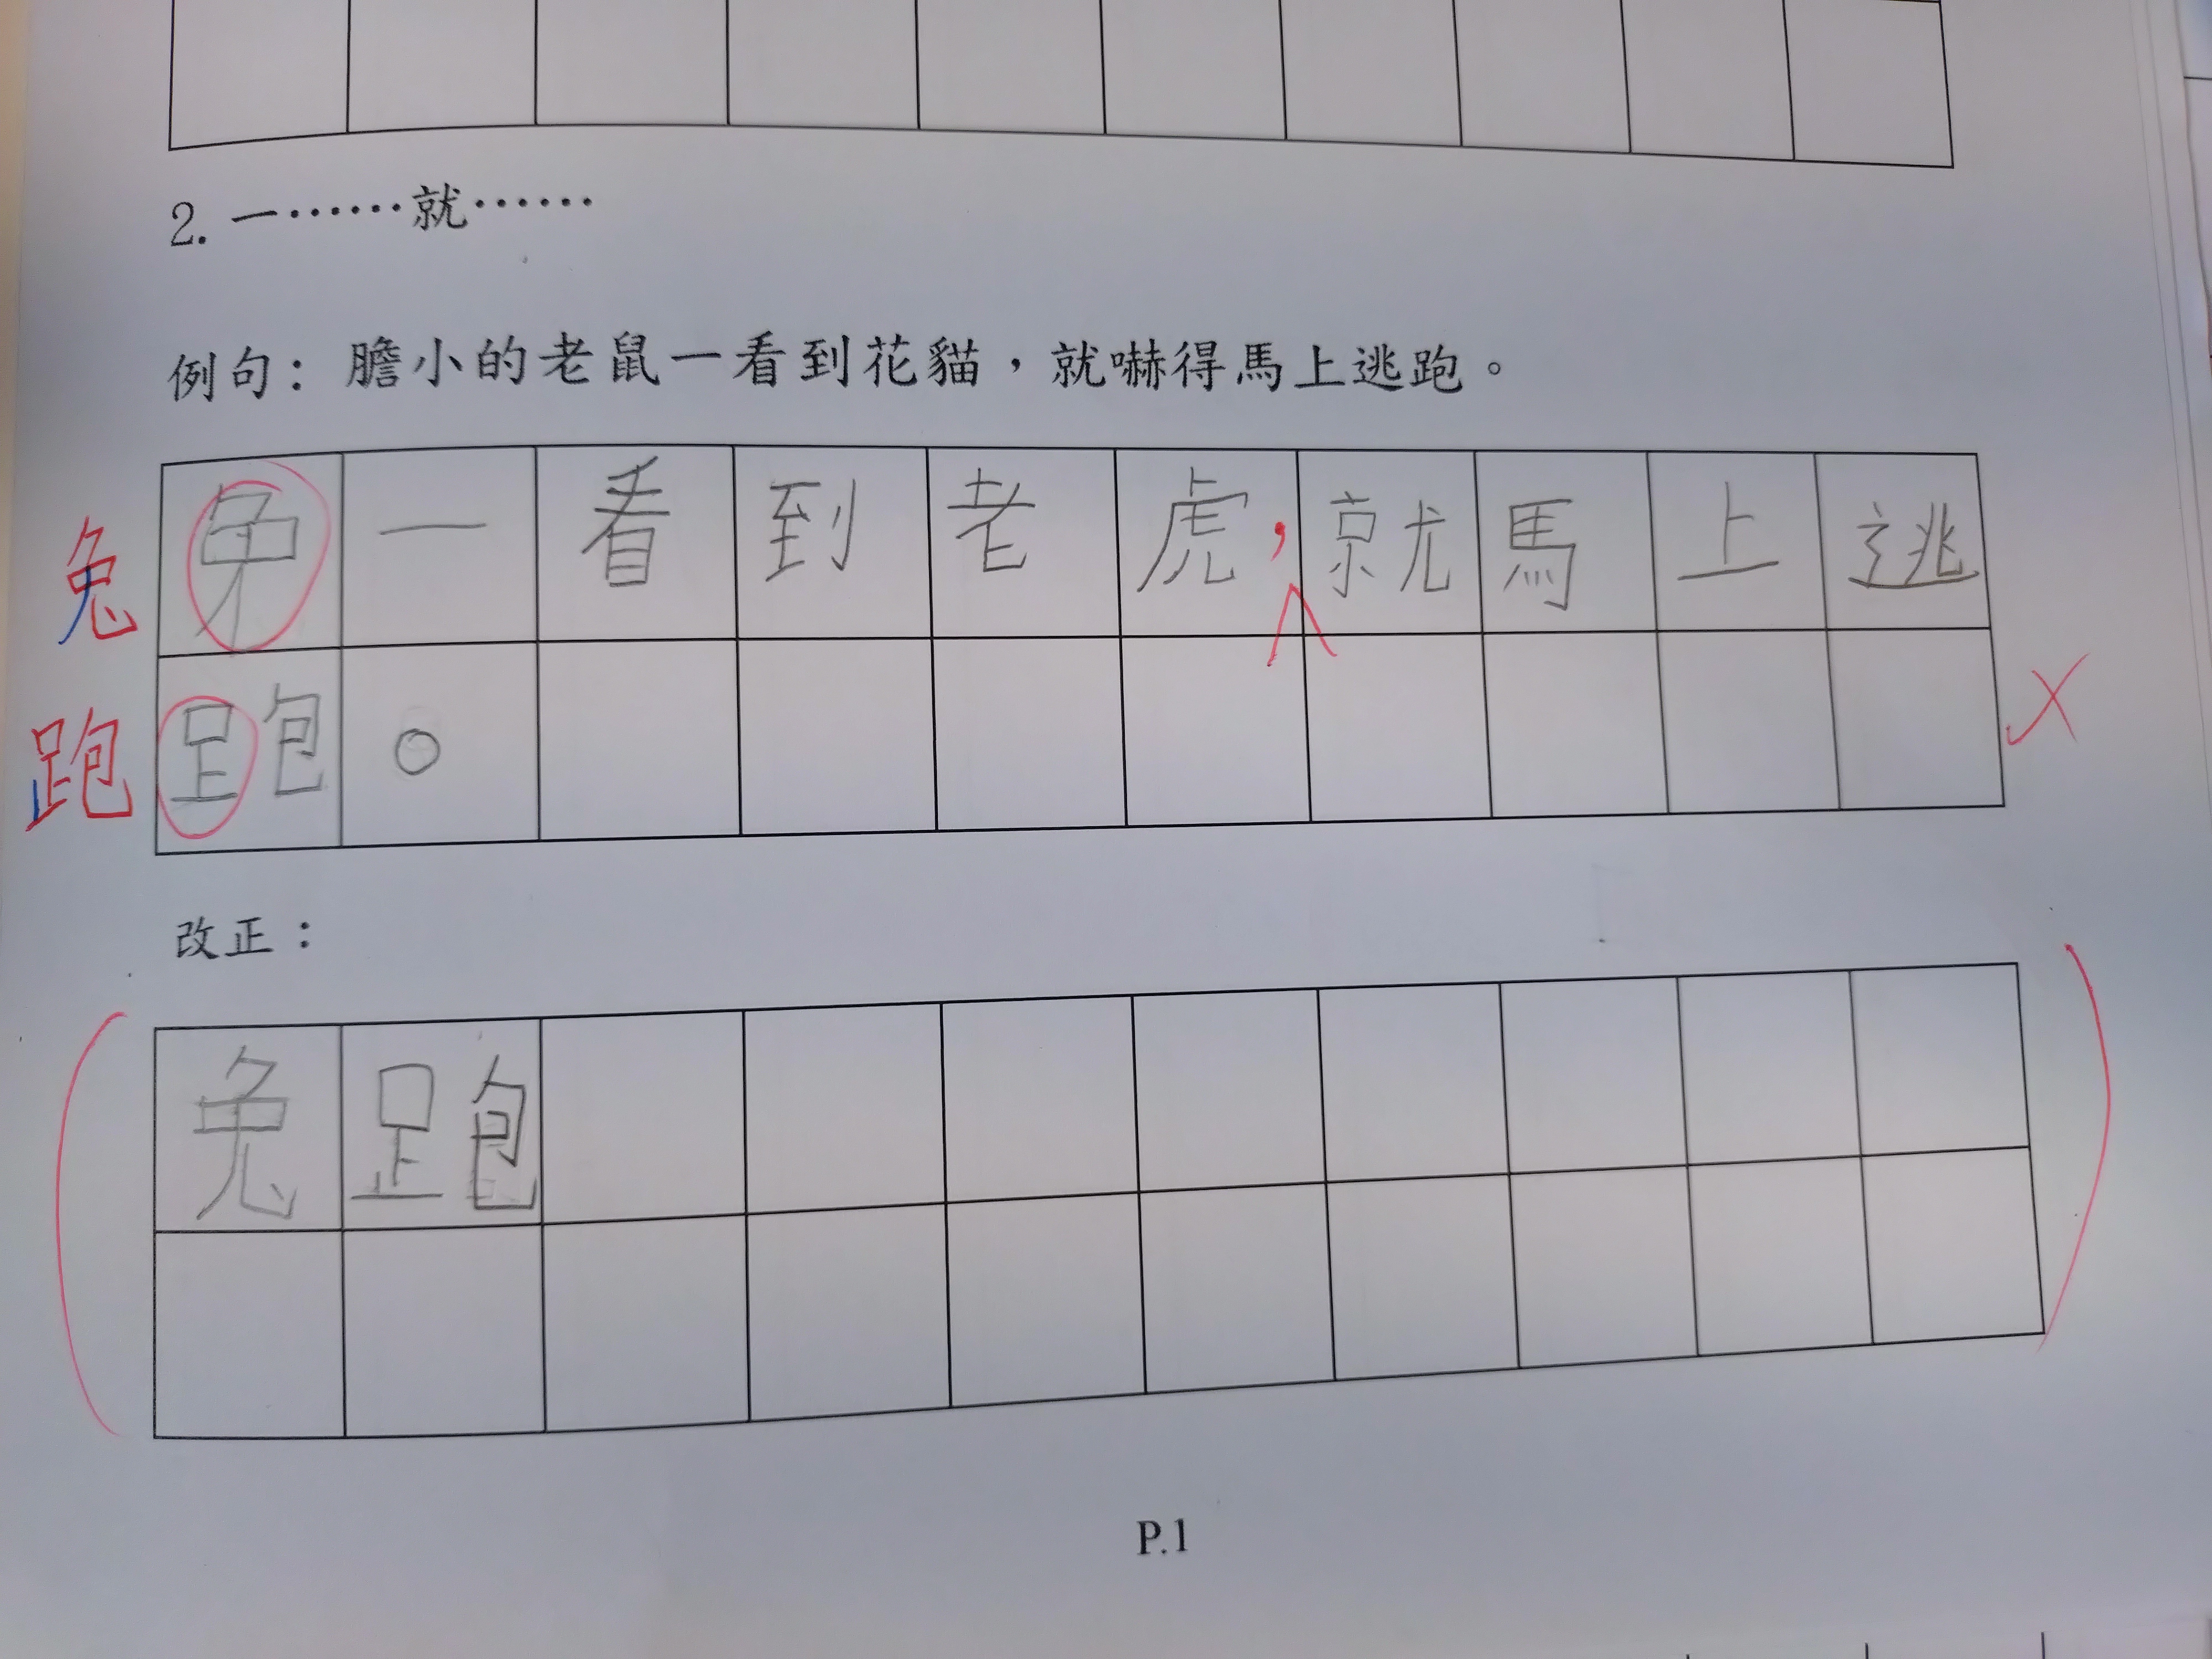 2. 一……就……
例句：膽小的老鼠一看到花貓，就嚇得馬上逃跑。
兔
一看到老虎，就馬上逃
跑
跑。
改正：
兔跑
P.1